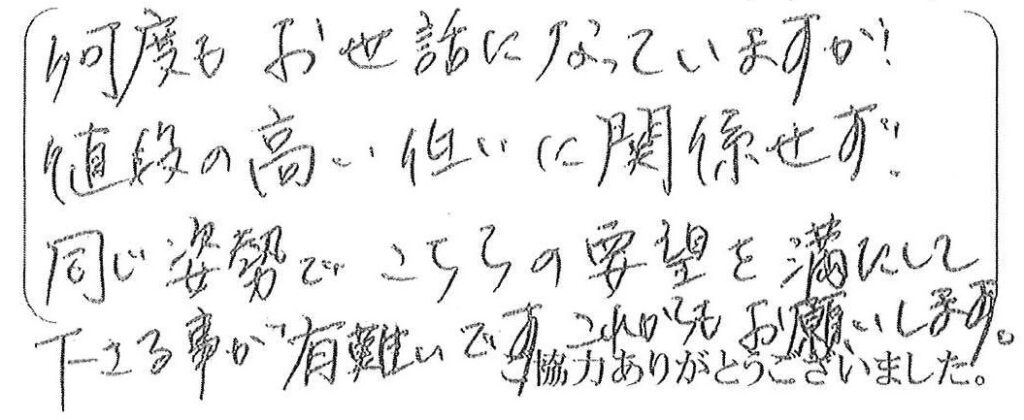 何度も お世話になっていますが!
値段の高い低いに関係せず!
同じ姿勢で こちらの要望を満たして
下さる事が有難いです。これからもお願いします。
ご協力ありがとうございました。